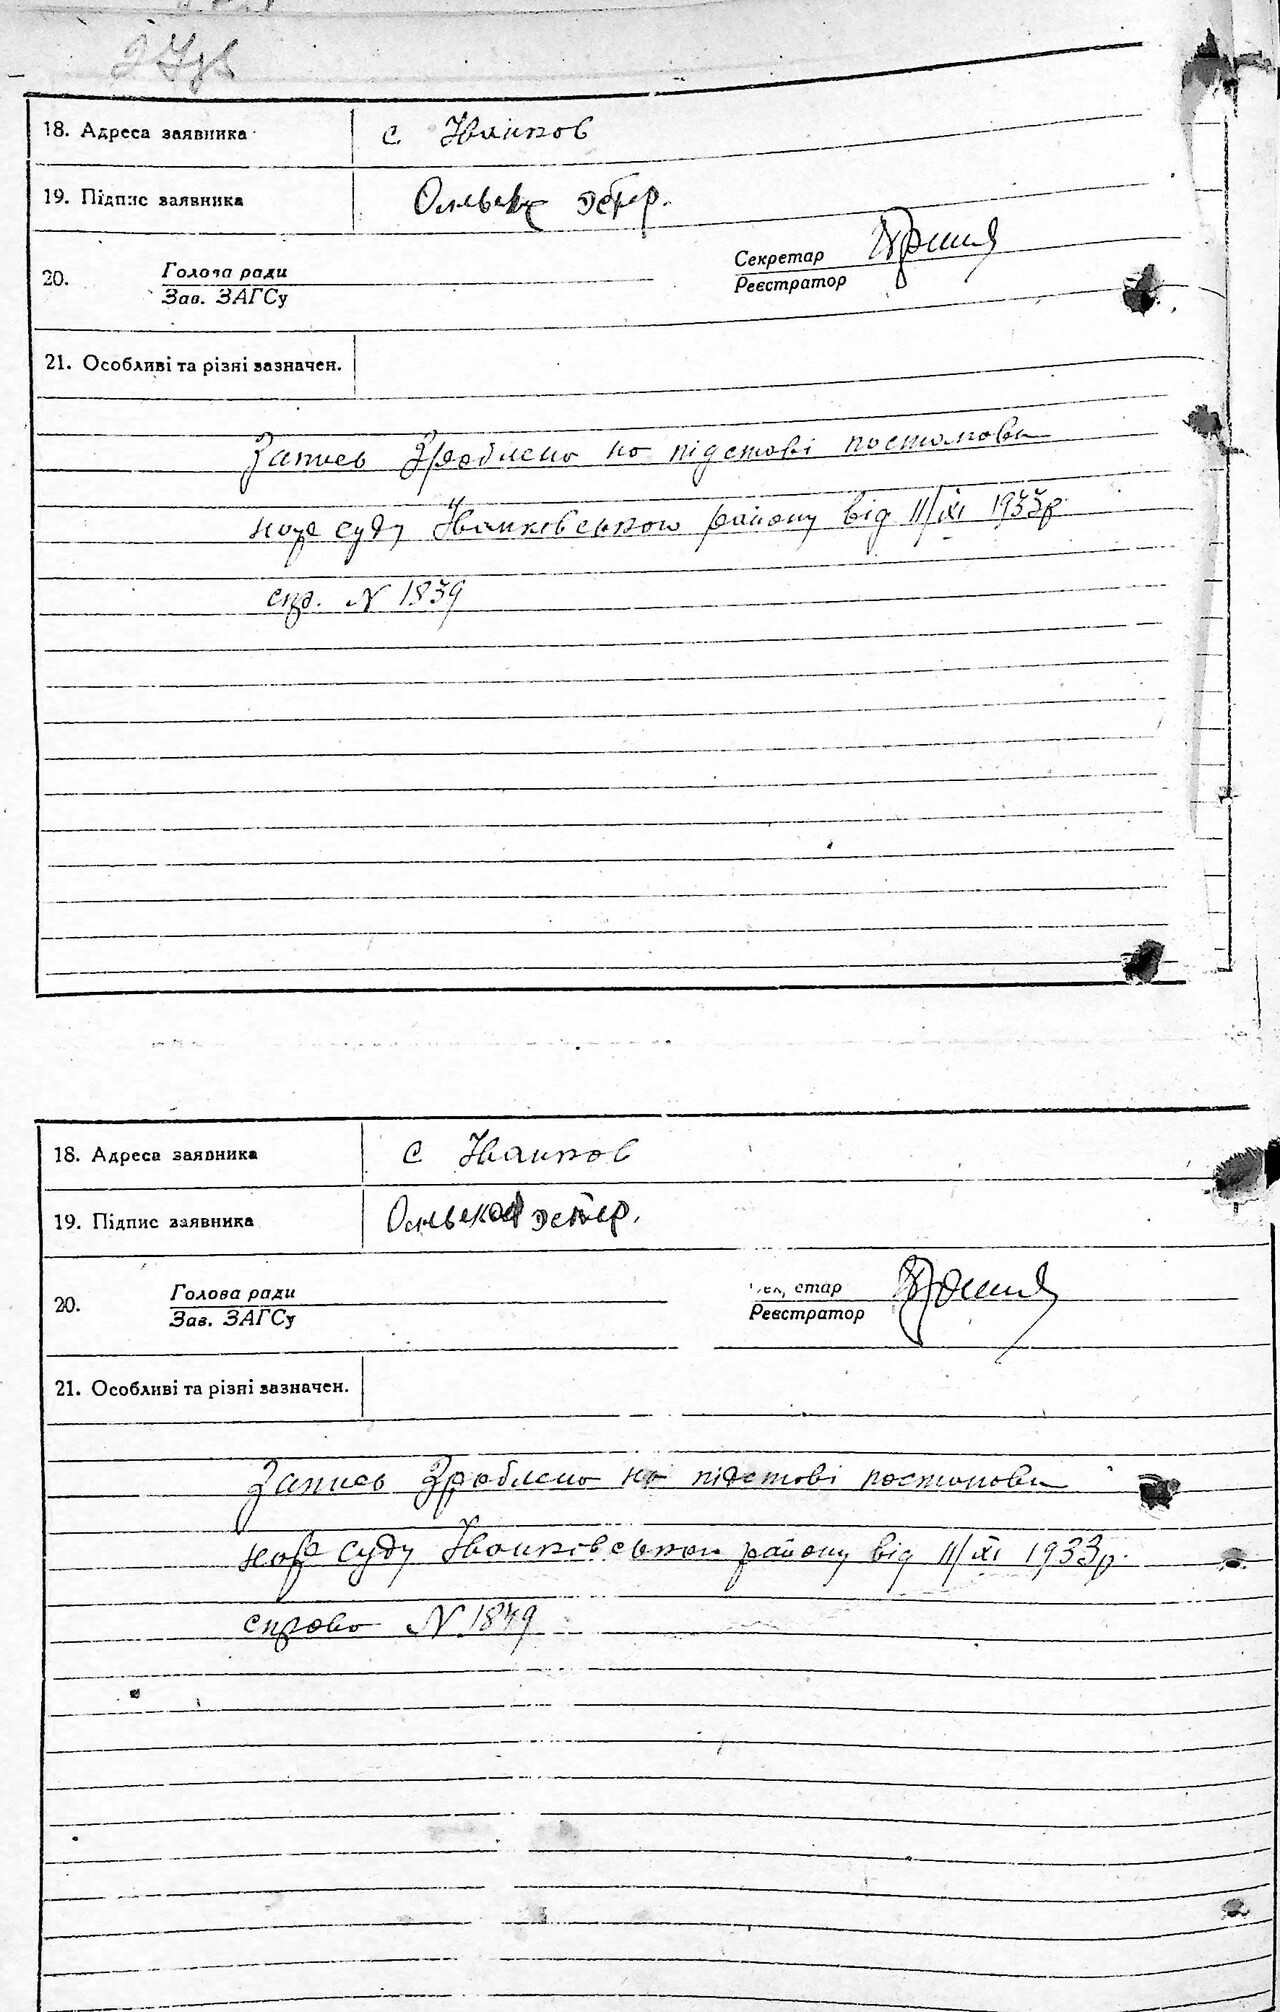 27зв
18. Адреса заявника с Иванков
19. Підпис заявника Ольвек Эстер.
20. Голова ради Секретар
Зав. ЗАГСу Реєстратор
21. Особливі та різні зазначен.
Запись Зроблено на підстові постонови
нар суду Иванковського району від 11/ІХ 1933р.
спр. N 1839
18. Адреса заявника с Иванков
19. Підпис заявника Эстер.
20. Голова ради стар
Зав. ЗАГСу Реєстратор
21. Особливі та різні зазначен.
Запись Зроблено на підстові постонови
нар суду Иванковського району від 11/ІХ 1933р.
справа N 1849